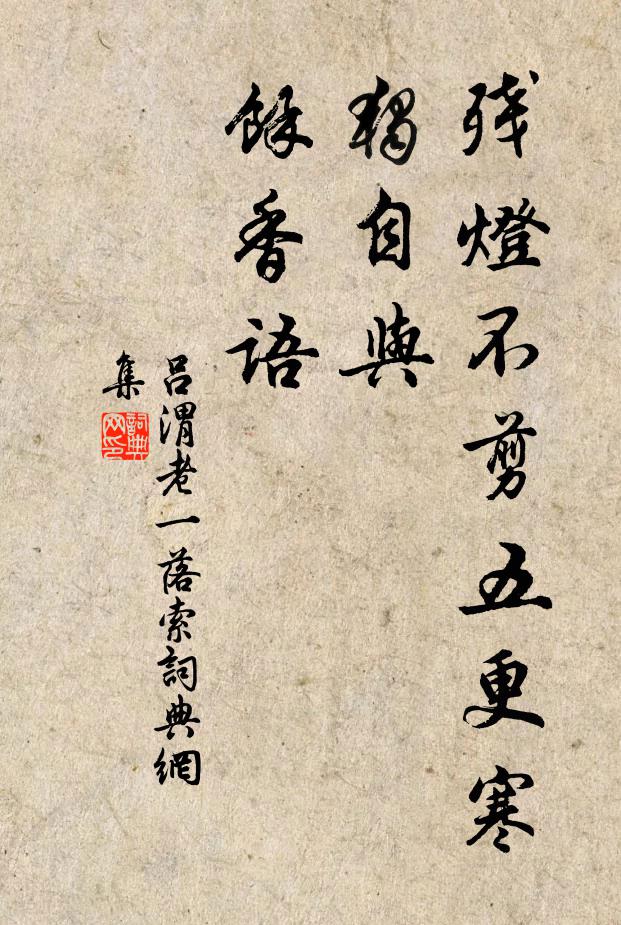 残燈不剪五更寒
獨自與
餘香語
吕渭老一落索詞典網
集
詞典
网印